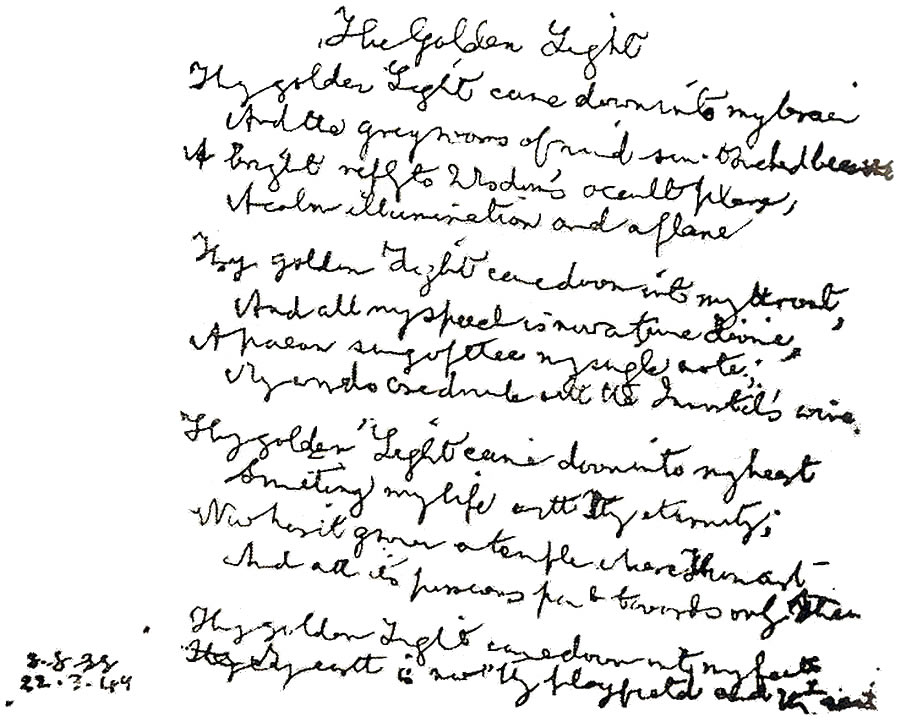 The Golden Light
Thy golden Light came down into my brain
And the grey rooms of mind sun-touched became
A bright reply to Wisdom's occult plane,
A calm illumination and a flame
Thy golden Light came down into my throat,
And all my speech is now a tune divine,
A paean song of thee my single note;
My words are drunk with the Immortal's wine.
Thy golden Light came down into my heart
Smiting my life with Thy eternity;
Now has it grown a temple where Thou art
And all its passions point towards only Thee
Thy golden Light came down into my feet
My earth is now thy playfield and thy seat
8-8-38
22.3.44